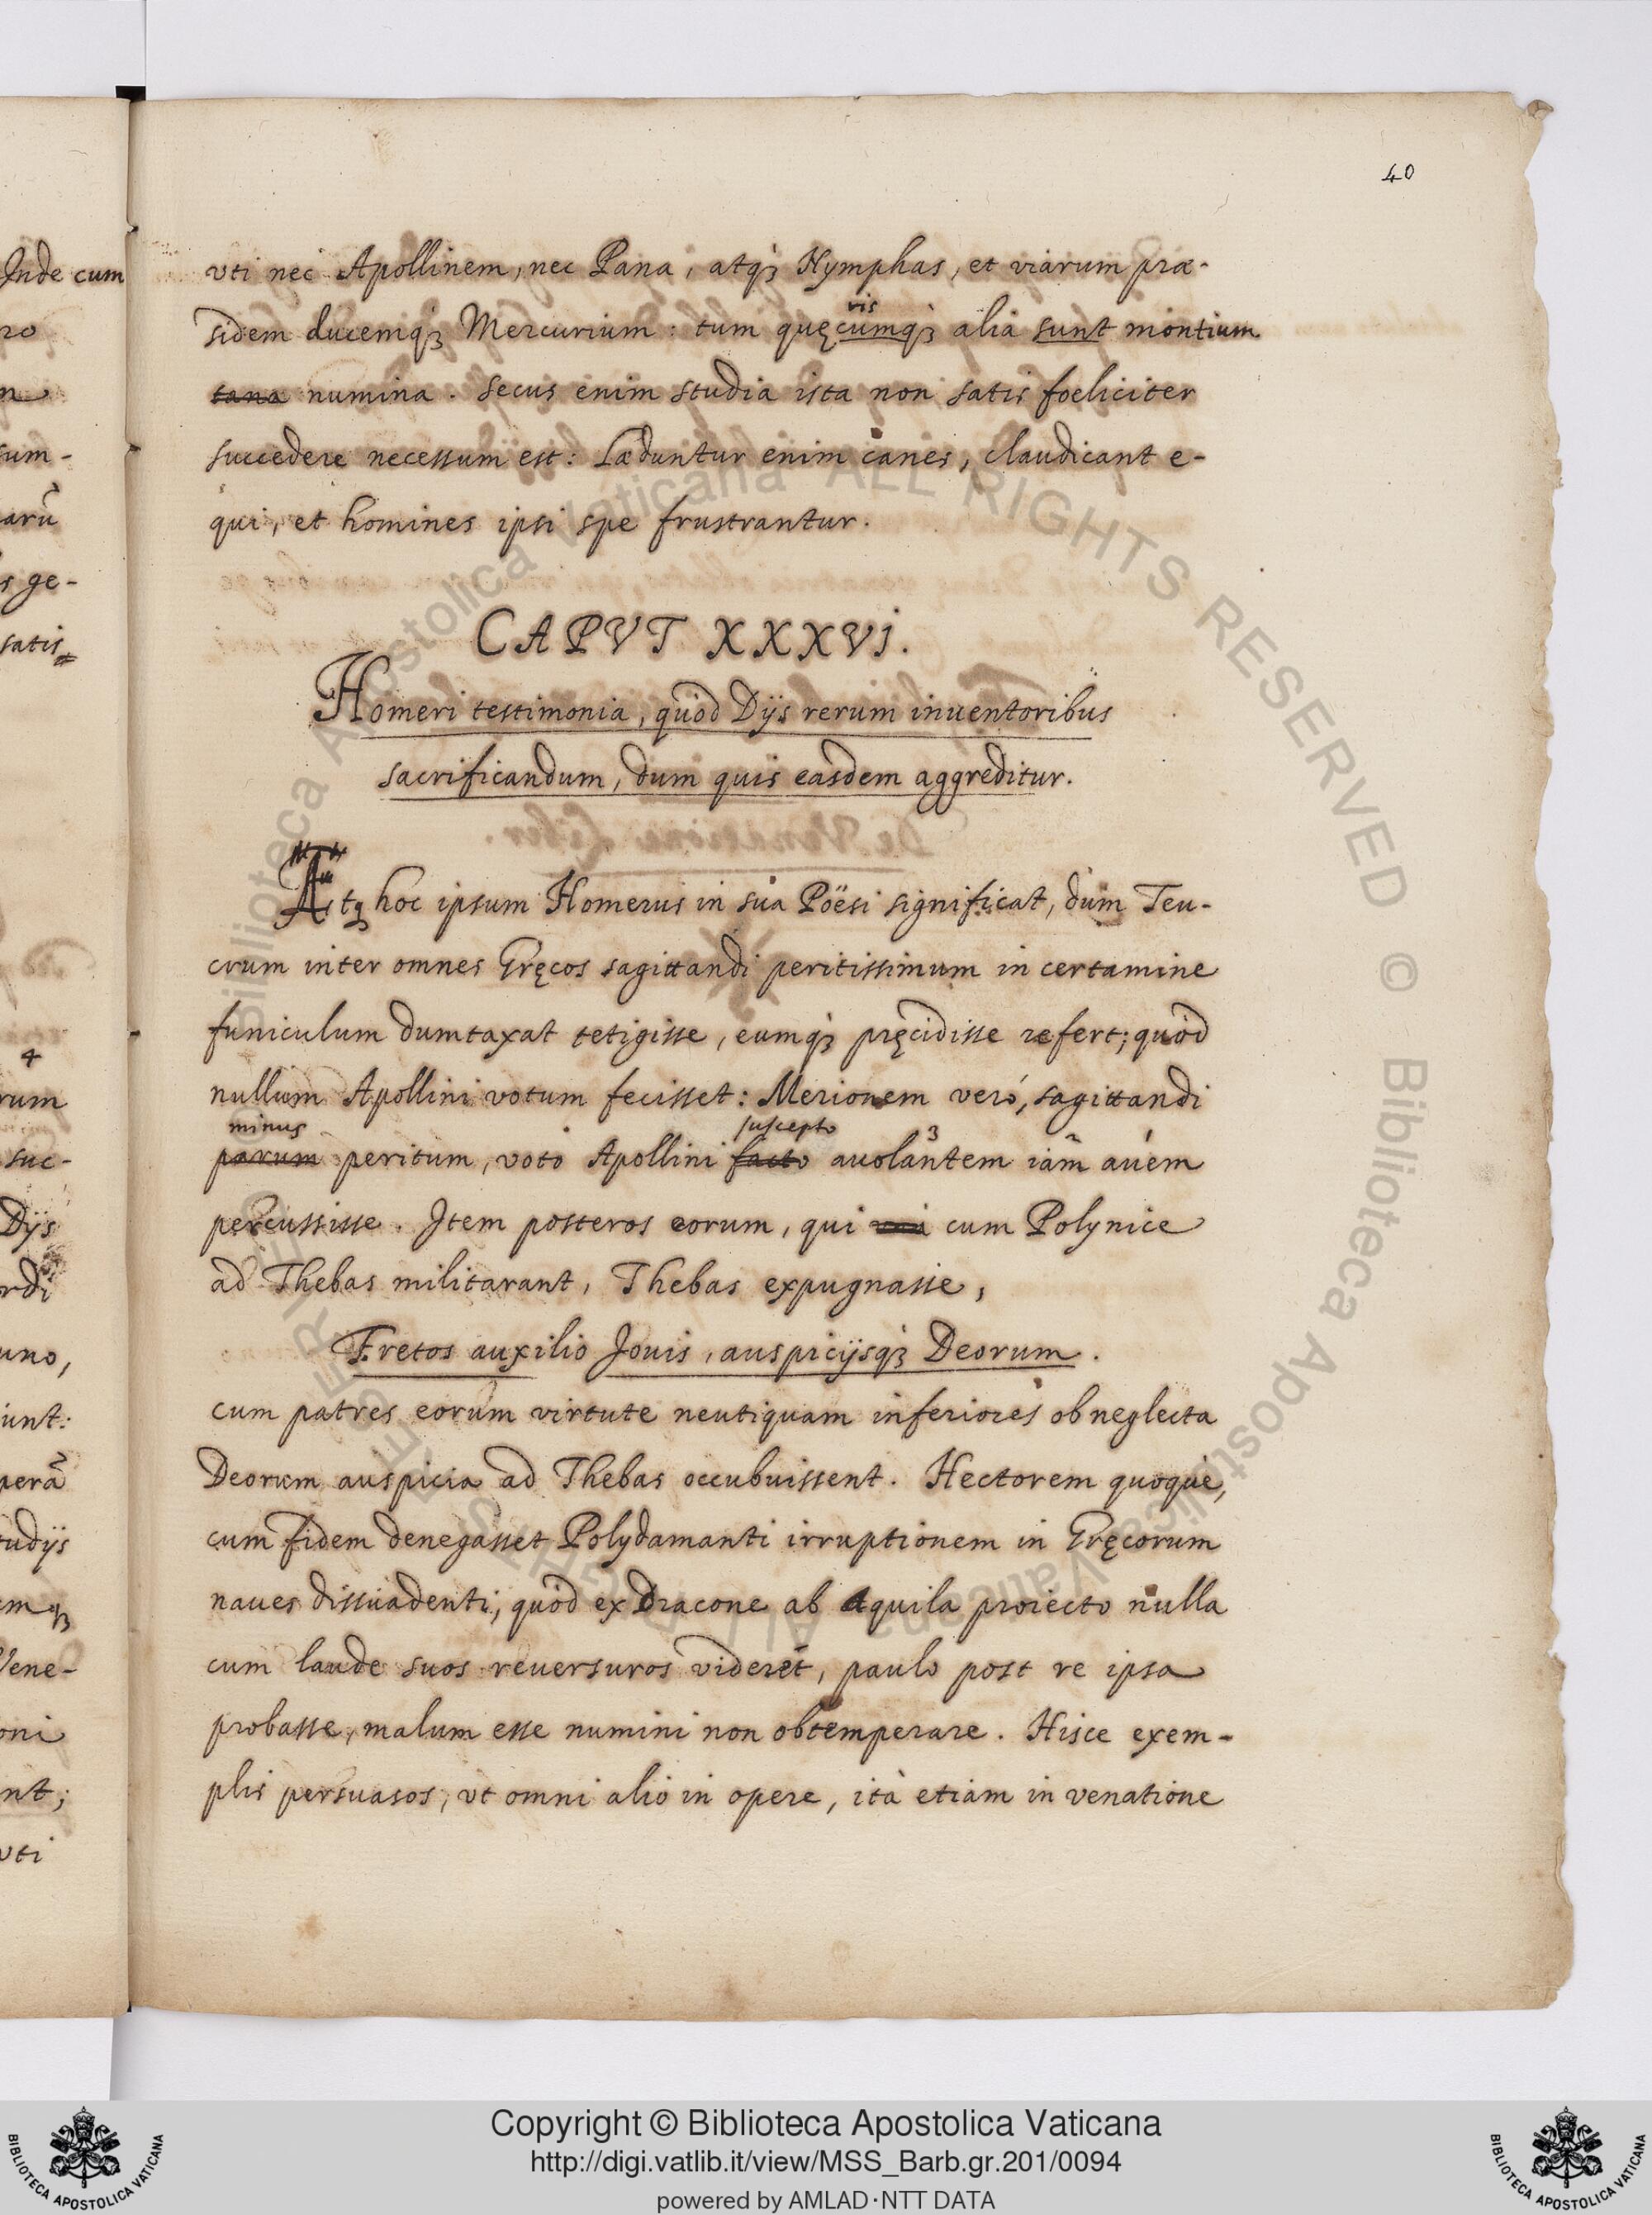 40
vti nec Apollinem, nec Pana, atqȝ Nymphas, et viarum præ-
sidem ducemqȝ Mercurium: tum quęcumqȝ alia sunt montium
vis
tana numina. Secus enim studia ista non satis foeliciter
succedere necessum est: Læduntur enim canes, claudicant e-
qui, et homines ipsi spe frustrantur.
CAPVT XXXVI.
Homeri testimonia, quòd Dijs rerum inuentoribus
sacrificandum, dum quis easdem aggreditur.
hoc ipsum Homerus in sua Pöesi significat, dum Teu-
crum inter omnes Gręcos sagittandi peritissimum in certamine
funiculum dumtaxat tetigisse, eumqȝ pręcidisse refert; quòd
nullum Apollini votum fecisset: Merionem verò, sagittandi
minus suscepto
parum peritum, voto Apollini facto auolantem iam auem
3 2 1
percussisse. Item posteros eorum, qui cum Polynice
ad Thebas militarant, Thebas expugnasse,
Fretos auxilio Jouis, auspicijsqȝ Deorum.
cum patres eorum virtute neutiquam inferiores ob neglecta
Deorum auspicia ad Thebas occubuissent. Hectorem quoque,
cum fidem denegasset Polydamanti irruptionem in Gręcorum
naues dissuadenti, quòd ex Dracone ab Aquila proiecto nulla
cum laude suos reuersuros videret, paulo post re ipsa
probasse, malum esse numini non obtemperare. Hisce exem-
plis persuasos, vt omni alio in opere, ità etiam in venatione
Inde cum
ro
sum-
arũ
s ge-
satis
4
rum
suc-
Dijs
rdi
uno,
iunt:
perã
tudijs
mqȝ
Vene-
oni
nt;
vti
Biblioteca Apostolica Vaticana ALL RIGHTS RESERVED © Biblioteca Apostolica Vaticana ALL RIGHTS RESERVED ©
Copyright © Biblioteca Apostolica Vaticana
http://digi.vatlib.it/view/MSS_Barb.gr.201/0094
powered by AMLAD·NTT DATA
BIBLIOTECA APOSTOLICA VATICANA
BIBLIOTECA APOSTOLICA VATICANA